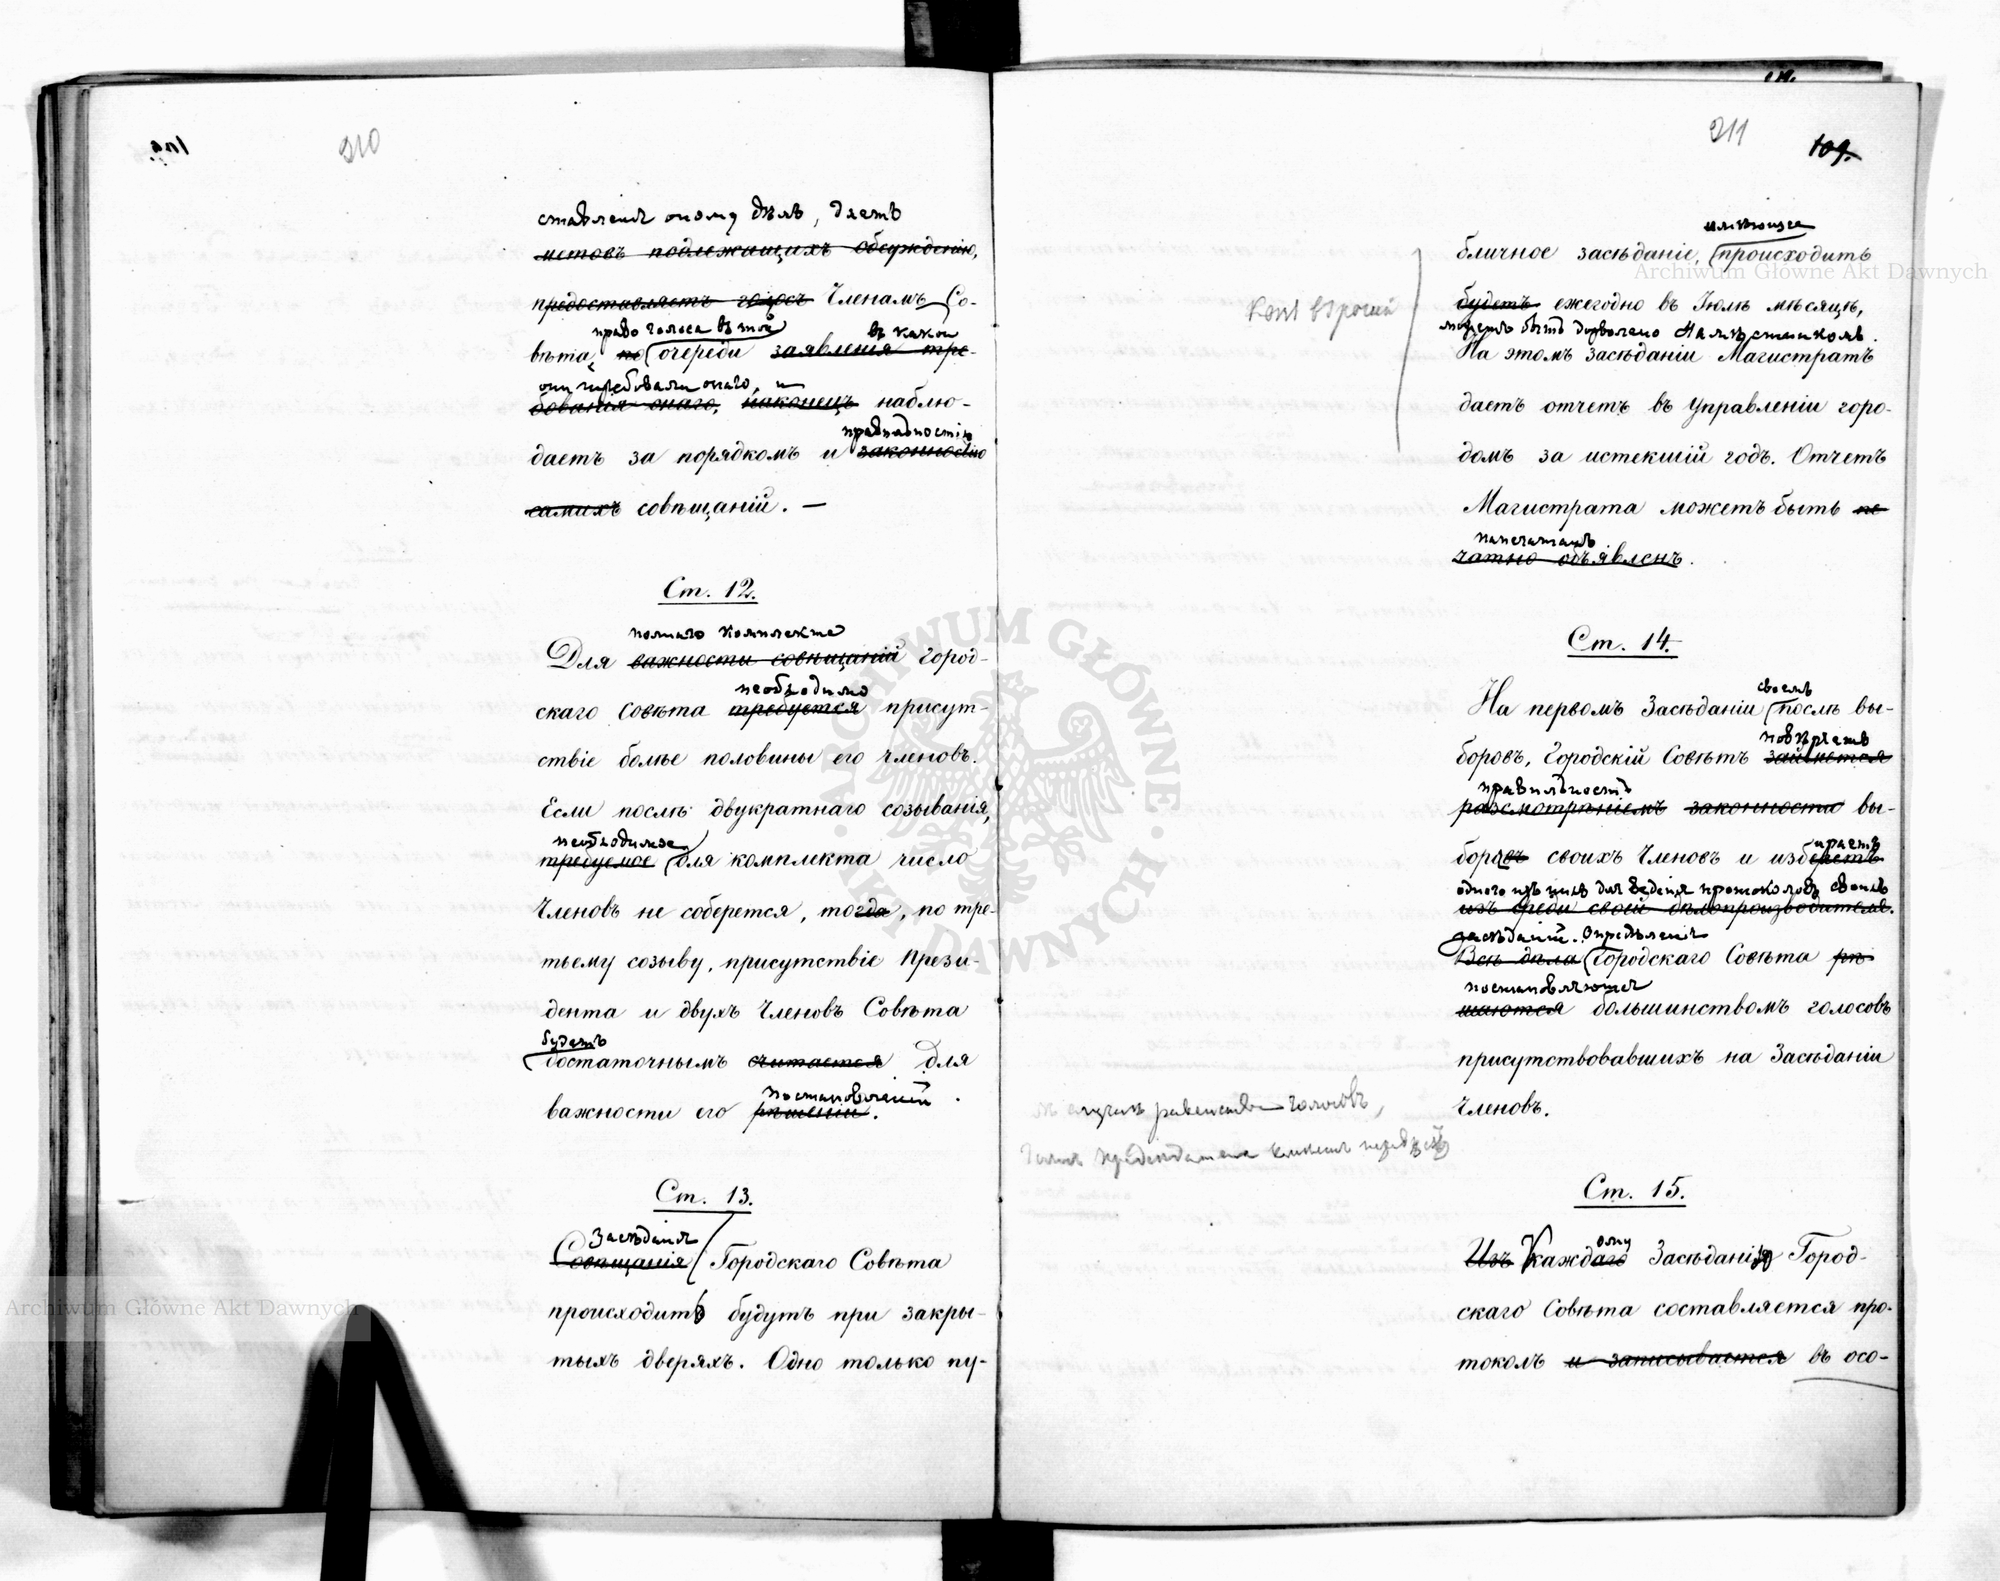 210
ставленія оному дѣлъ, даетъ
метовъ подлежащихъ обсужденію,
предоставляетъ голосъ Членамъ Со-
право голоса въ той въ какой
вѣта, по очереди заявленія тре-
они требовали онаго, и
бованія онаго, наконецъ наблю-
правильностію
даетъ за порядкомъ и законностію
самихъ совѣщаній. —
Ст. 12.
полнаго комплекта
Для важности совѣщаній Город-
необходимо
скаго Совѣта требуется присут-
ствіе болѣе половины его членовъ.
Если послѣ двукратнаго созыванія,
необходимое
требуемое для комплекта число
Членовъ не соберется, тогда, по тре-
тьему созыву, присутствіе Прези-
дента и двухъ Членовъ Совѣта
будетъ
достаточнымъ считается для
постановленій
важности его рѣшеній.
Ст. 13.
Засѣданія
Совѣщанія Городскаго Совѣта
происходить будутъ при закры-
тыхъ дверяхъ. Одно только пу-
211
109.
имѣющее
бличное засѣданіе, происходить
будетъ ежегодно въ Іюлѣ мѣсяцѣ,
можетъ быть дозволено Намѣстникомъ.
На этомъ засѣданіи Магистратъ
даетъ отчетъ въ Управленіи горо-
домъ за истекшій годъ. Отчетъ
Магистрата можетъ быть пе
напечатанъ
чатно объявленъ.
Ст. 14.
своемъ
На первомъ Засѣданіи послѣ вы-
повѣряетъ
боровъ, Городскій Совѣтъ займется
правильность
разсмотрѣніемъ законности вы-
ираетъ
боровъ своихъ Членовъ и изберетъ
одного изъ нихъ для веденія протоколовъ своихъ
изъ среди своей дѣлопроизводителя.
засѣданій. Опредѣленія
Всѣ дѣла Городскаго Совѣта рѣ
постановляются
шаются большинствомъ голосовъ
присутствовавшихъ на Засѣданіи
Членовъ.
случаѣ равенства голосовъ,
Голосъ Предсѣдателя
Ст. 15.
ому
Изъ каждаго Засѣданія Город-
скаго Совѣта составляется про-
токолъ и записывается въ осо-
Archiwum Główne Akt Dawnych
Archiwum Główne Akt Dawnych
ARCHIWUM GŁÓWNE
AKT DAWNYCH